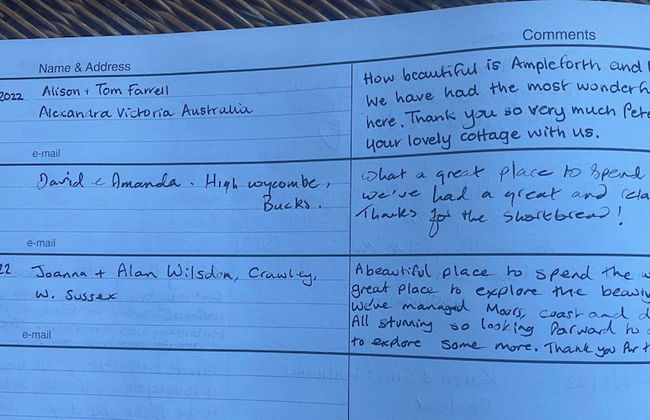 Name & Address
Comments
2022
Alison + Tom Farrell
Alexandra Victoria Australia
e-mail
How beautiful is Ampleforth and
We have had the most wonderf
here. Thank you so very much Pete
your lovely cottage with us.
David & Amanda. High Wycombe,
Bucks.
e-mail
What a great place to spend
we've had a great and rela
Thanks for the shortbread!
22
Joanna + Alan Wilsdon, Crawley,
W. Sussex
e-mail
A beautiful place to spend the w
great place to explore the beauti
We've managed Moors, coast and d
All stunning so looking forward to
to explore some more. Thank you for t